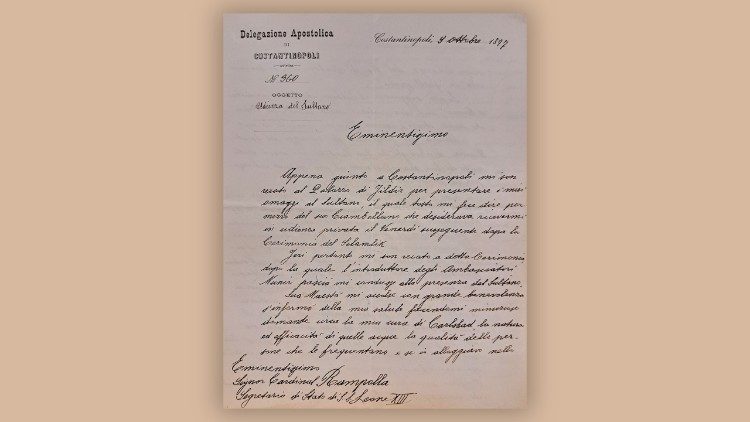 Delegazione Apostolica
DI
COSTANTINOPOLI
Nº 360
OGGETTO
Udienza del Sultano
Costantinopoli, 9 Ottobre 1897
Eminentissimo
Appena giunto a Costantinopoli mi son
recato al Palazzo di Jildiz per presentare i miei
omaggi al Sultano, il quale tosto me fece dire per
mezzo del suo Ciambellano che desiderava ricevermi
in udienza privata il Venerdì susseguente dopo la
Cerimonia del Selamlik
Jeri pertanto mi son recato a detta Cerimonia
dopo la quale l'introduttore degli Ambasciatori
Munir pascià mi condusse alla presenza del Sultano.
Sua Maestà mi accolse con grande benevolenza
s'informò della mia salute facendomi minuziose
domande circa la mia cura di Carlsbad la natura
ed efficacità di quelle acque la qualità delle per-
sone che le frequentano e se si alloggian nelle
Eminentissimo
Signor Cardinal Rampolla
Segretario di Stato di S.S. Leone XIII